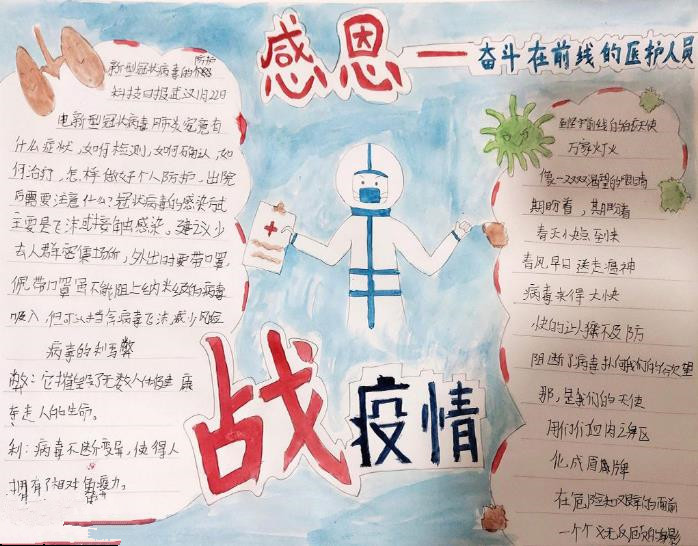 感恩——奋斗在前线的医护人员
新型冠状病毒的防护
科技日报武汉1月22日
电新型冠状病毒肺炎究竟有
什么症状，如何检测，如何确认，如
何治疗，怎样做好个人防护，出院
后需要注意什么？冠状病毒的感染方式
主要是飞沫或接触感染。建议少
去人群密集场所，外出时要带口罩，
佩带口罩虽不能阻止纳米级的病毒
吸入，但可以挡含病毒飞沫，减少风险
病毒的利与弊
弊：它摧毁了无数人体健康
夺走人的生命。
利：病毒不断变异，使得人
拥有了相对免疫力。
战疫情
前线的白衣天使
万家灯火
像一双双渴望的眼睛
期盼着，期盼着
春天小点到来
春风早日送走瘟神
病毒来得太快
快的让人猝不及防
阻断了病毒扑向我们的
那，是我们的天使
用们们
化成盾牌
在危险和艰难的面前
一个个义无反顾的身影